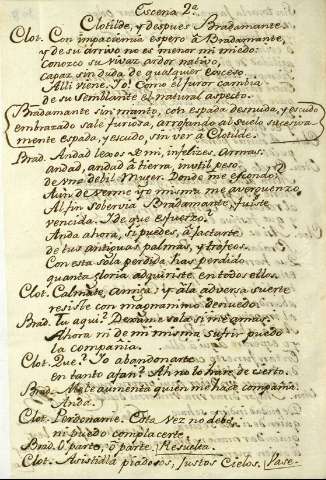 Escena 2ª
Clotilde, y despues Bradamante.
Clot. Con impaciencia espero à Bradamante,
y de su arrivo no es menor mi miedo:
Conozco su vivaz ardor nativo,
capaz sin duda de qualquer exceso.
Alli viene. Jo! Como el furor cambia
de su semblante el natural aspecto.
Bradamante sin manto, con espada desnuda, y escudo
embrazado sale furiosa, arrojando al suelo sucesiva-
mente espada, y escudo, sin ver à Clotilde.
Brad. Andad lexos de mi, infelizes armas:
andad, andad à tierra, inutil peso
de una debil Muger. Donde me escondo?
Aun de verme yo misma me averguenzo.
Al fin sobervia Bradamante, fuiste
vencida. Y de que esfuerzo?
Anda ahora, si puedes, à jactarte
de tus antiguas palmas, y trofeos.
Con esta sola perdida has perdido
quanta gloria adquiriste en todos ellos.
Clot. Calmate, Amiga: y à la adversa suerte
resiste con magnanimo denuedo.
Brad. Tu aqui? Dexame sola si me amas.
Ahora ni de mi misma sufrir puedo
la compañia.
Clot. Que? Yo abandonarte
en tanto afan? Ah no lo haré de cierto.
Brad. Me le aumenta quien me hace compañia.
Anda.
Clot. Perdoname. Esta vez no debo,
ni puedo complacerte.
Brad. O parte, ò parto. Resuelta.
Clot. Asistidla piadosos, Justos Cielos. Vase.